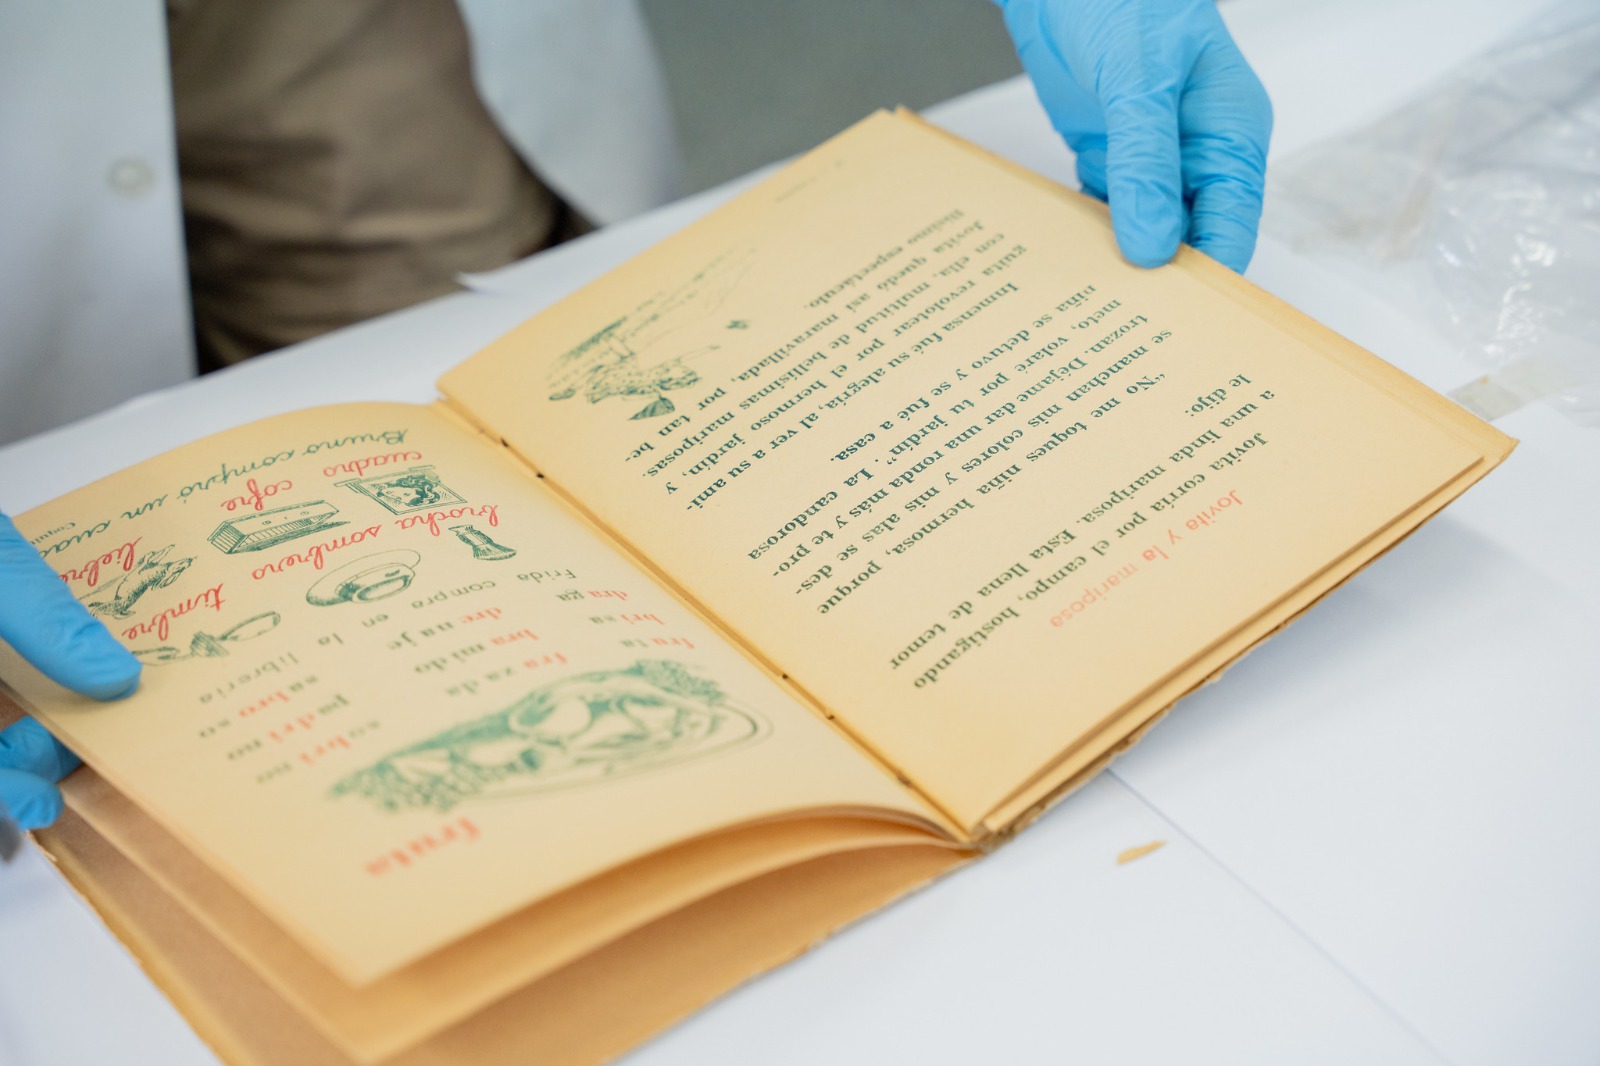 Jovita y la mariposa
Jovita corría por el campo, hostigando
a una linda mariposa. Esta llena de temor
le dijo:
"No me toques niña hermosa, porque
se manchan mis colores y mis alas se des-
trozan. Déjame dar una ronda más y te pro-
meto, volaré por tu jardín". La candorosa
niña se detuvo y se fué a casa.
Inmensa fué su alegría, al ver a su ami-
guita revolotear por el hermoso jardín, y
con ella, multitud de bellísimas mariposas.
Jovita quedó así maravillada, por tan be-
llísimo espectáculo.
fruta
fru ta fra za da so bri no
bri sa bra mi do pa dri no
dra ga dre na je sa bro so
Frida compra en la librería
brocha sombrero timbre
cuadro cofre liebre
Bruno compró un cuad